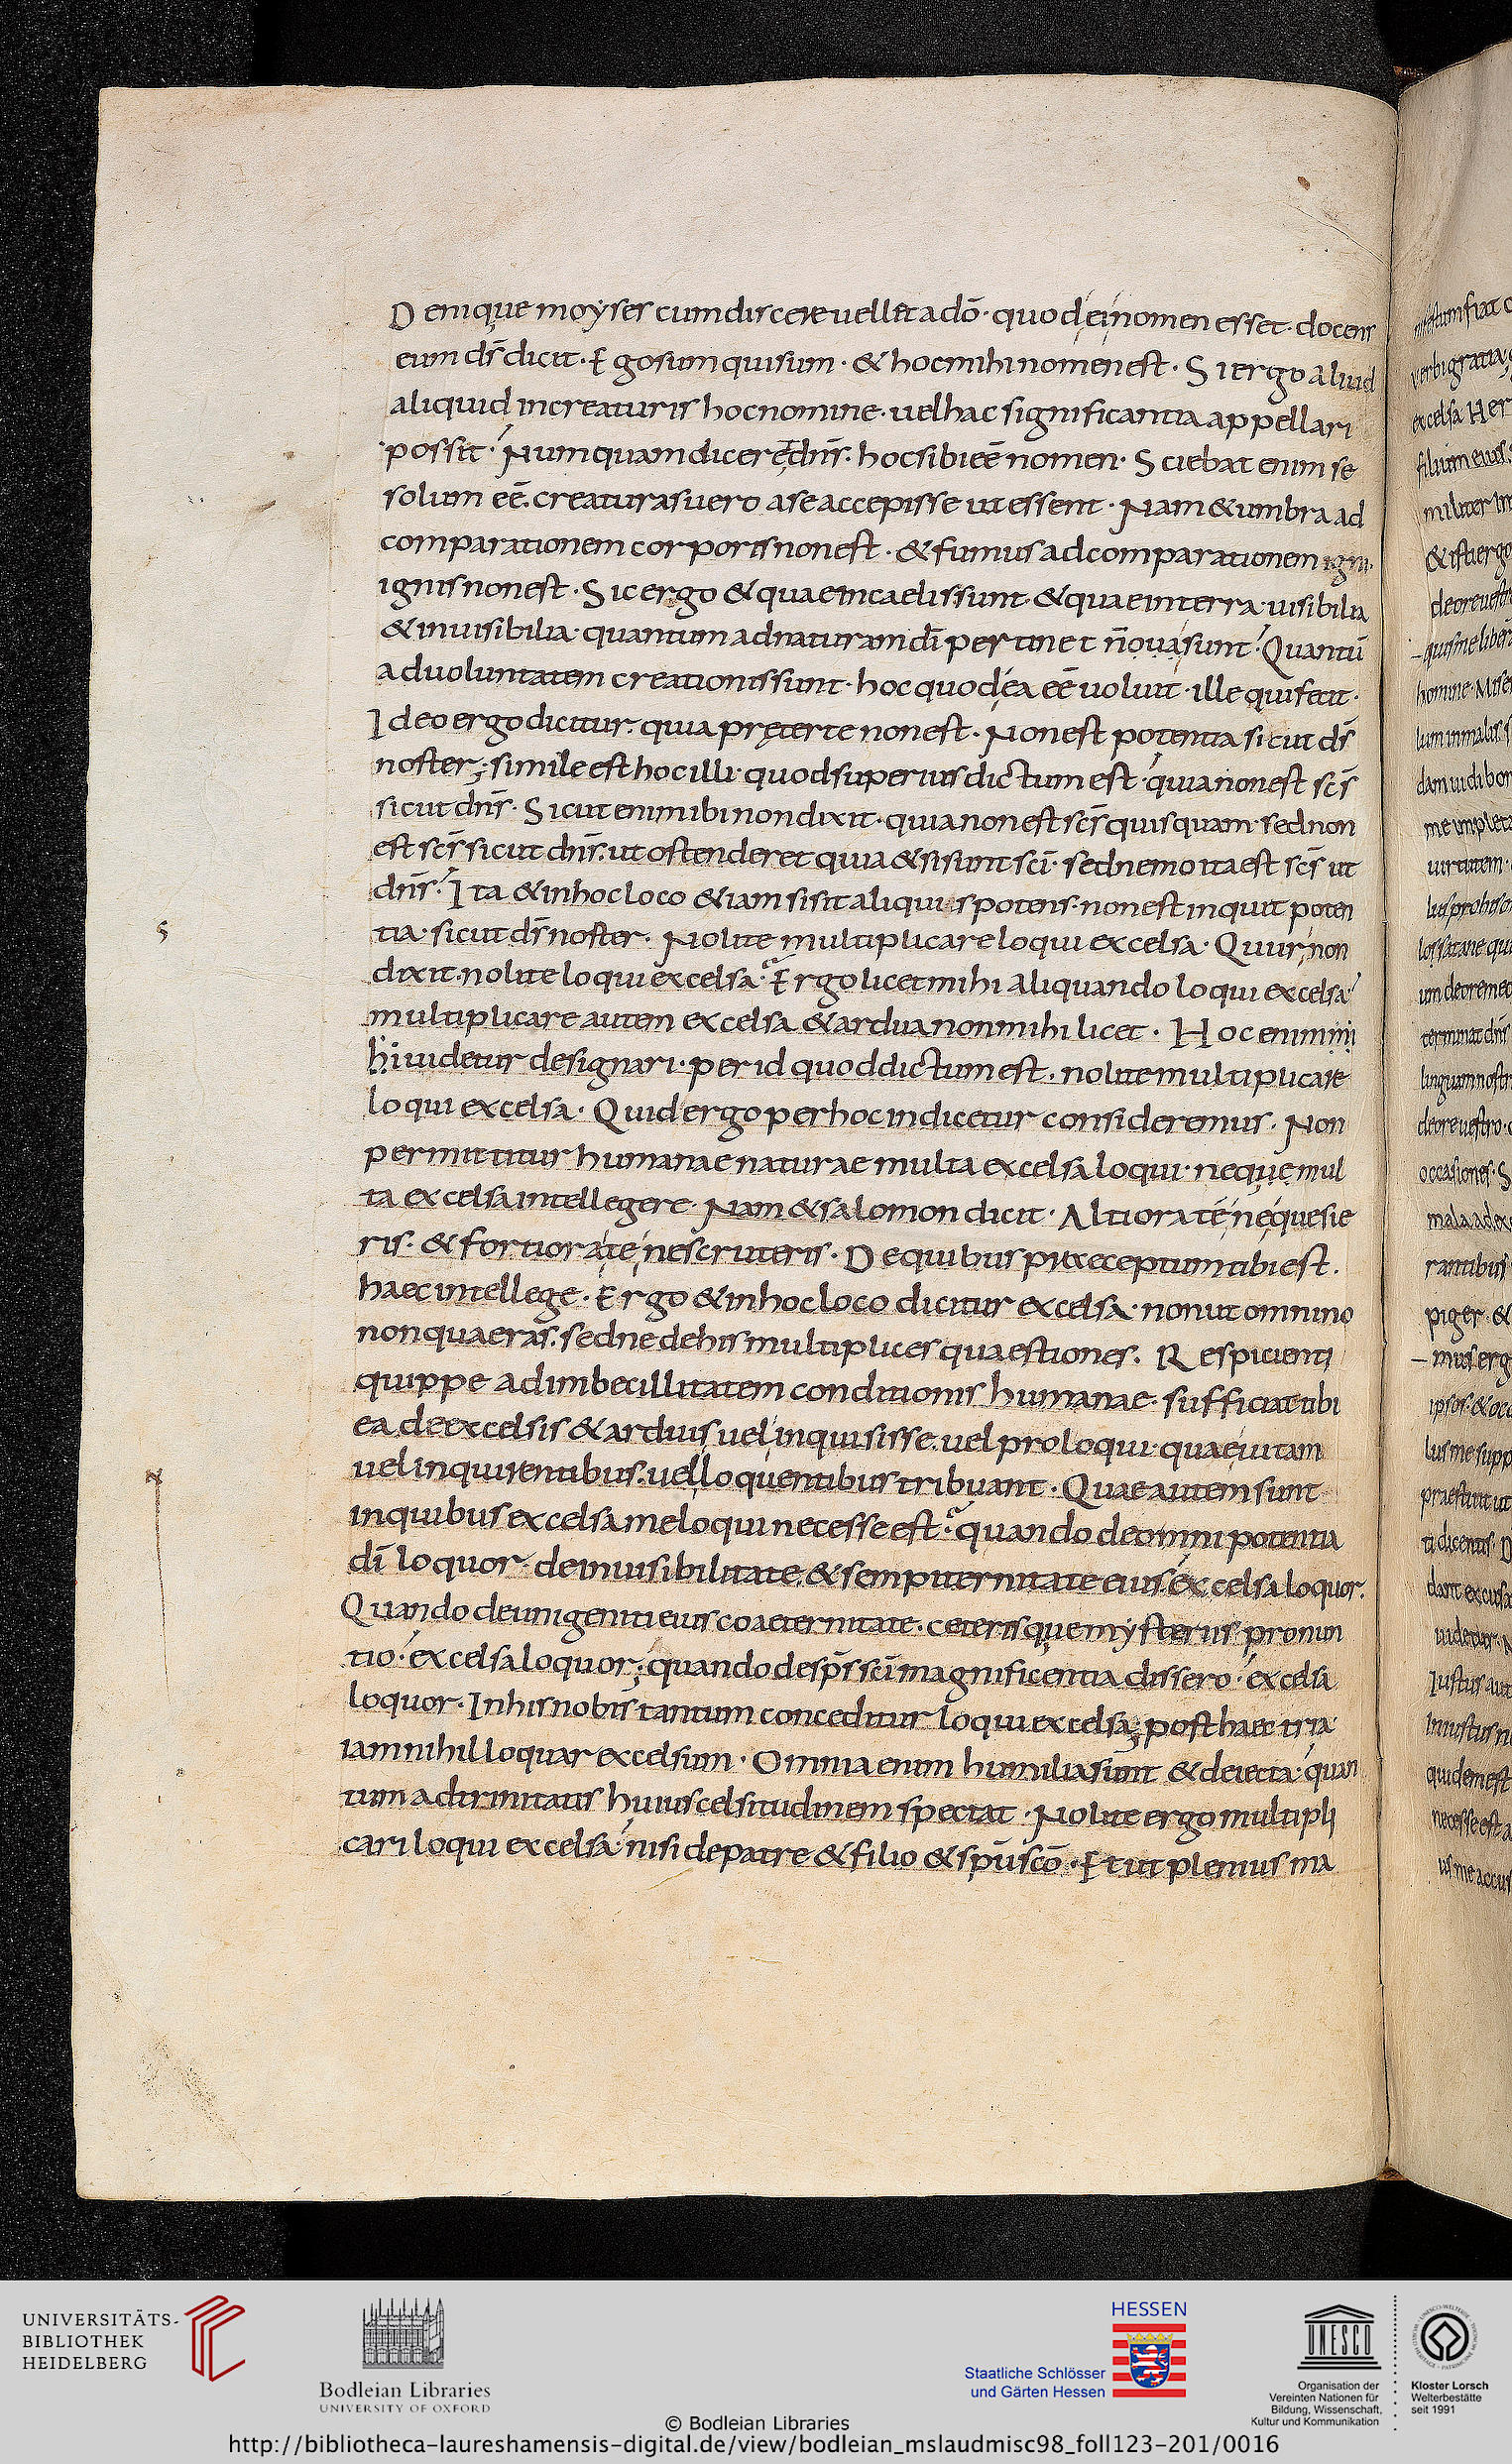 Denique moyses cum discere uellet ado̅· quod ei nomen esset· docens
eum d̅s dicit· Ego sum qui sum· & hoc mihi nomen est· Si ergo aliud
aliquid in creaturis hoc nomine· uel hac significantia appellari
possit· Numquam diceret dn̅s· hoc sibi ee̅ nomen· Sciebat enim se
solum ee̅· creaturas uero ase accepisse ut essent· Nam & umbra ad
comparationem corporis non est· & fumus ad comparationem igni·
ignis non est· Sic ergo & quae in caelis sunt· & quae in terra uisibilia
& inuisibilia· quantum ad naturam di̅ pertinet n̅oua sunt· Quantu̅
ad uoluntatem creationis sunt· hoc quod ea ee̅ uoluit· ille qui fecit·
Ideo ergo dicitur· quia pręter te non est· Non est potentia sicut ds̅
noster; simile est hoc illi· quod superius dictum est· quia non est scs̅
sicut dn̅s· Sicut enim ibi non dixit· quia non est scs̅ quisquam· sed non
est scs̅ sicut dn̅s· ut ostenderet quia & si sunt sci̅· sed nemo ita est scs̅ ut
dn̅s· Ita & in hoc loco &iam si sit aliquis potens· non est inquit poten
tia· sicut ds̅ noster· Nolite multiplicare loqui excelsa· Quur non
dixit· nolite loqui excelsa· Ergo licet mihi aliquando loqui excelsa·
multiplicare autem excelsa & ardua non mihi licet· Hoc enim mi
hi uidetur designari· per id quod dictum est· nolite multiplicare
loqui excelsa· Quid ergo per hoc indicetur consideremus· Non
permittitur humanae naturae multa excelsa loqui· neque mul
ta excelsa intellegere· Nam & salomon dicit· Altiora te ne quesie
ris· & fortiora te ne scruteris· De quibus praeceptum tibi est·
haec intellege· Ergo & in hoc loco dicitur excelsa· non ut omnino
non quaeras· sed ne de his multiplices quaestiones· Respicienti
quippe ad imbecillitatem conditionis humanae· sufficiat tibi
ea de excelsis & arduis uel inquisisse· uel proloqui· quae uitam
uel inquirentibus· uel loquentibus tribuant· Quae autem sunt
in quibus excelsa me loqui necesse est· quando de omnipotentia
di̅ loquor· de inuisibilitate & sempiternitate eius excelsa loquor·
Quando de unigeniti eius coaeternitate· ceterisque mysteriis pronun
tio· excelsa loquor; quando de sps̅ sci̅ magnificentia dissero· excelsa
loquor· In his nobis tantum conceditur loqui excelsa; post haec tria
iam nihil loquar excelsum· Omnia enim humilia sunt & deiecta· quan
tum ad trinitatis huius celsitudinem spectat· Nolite ergo multipli
cari loqui excelsa· nisi de patre & filio & spu̅ sco̅· Et ut plenius ma
UNIVERSITÄTS-
BIBLIOTHEK
HEIDELBERG
Bodleian Libraries
UNIVERSITY OF OXFORD
HESSEN
Staatliche Schlösser
und Gärten Hessen
UNESCO
Organisation der
Vereinten Nationen für
Bildung, Wissenschaft,
Kultur und Kommunikation
Kloster Lorsch
Welterbestätte
seit 1991
© Bodleian Libraries
http://bibliotheca-laureshamensis-digital.de/view/bodleian_mslaudmisc98_foll123-201/0016